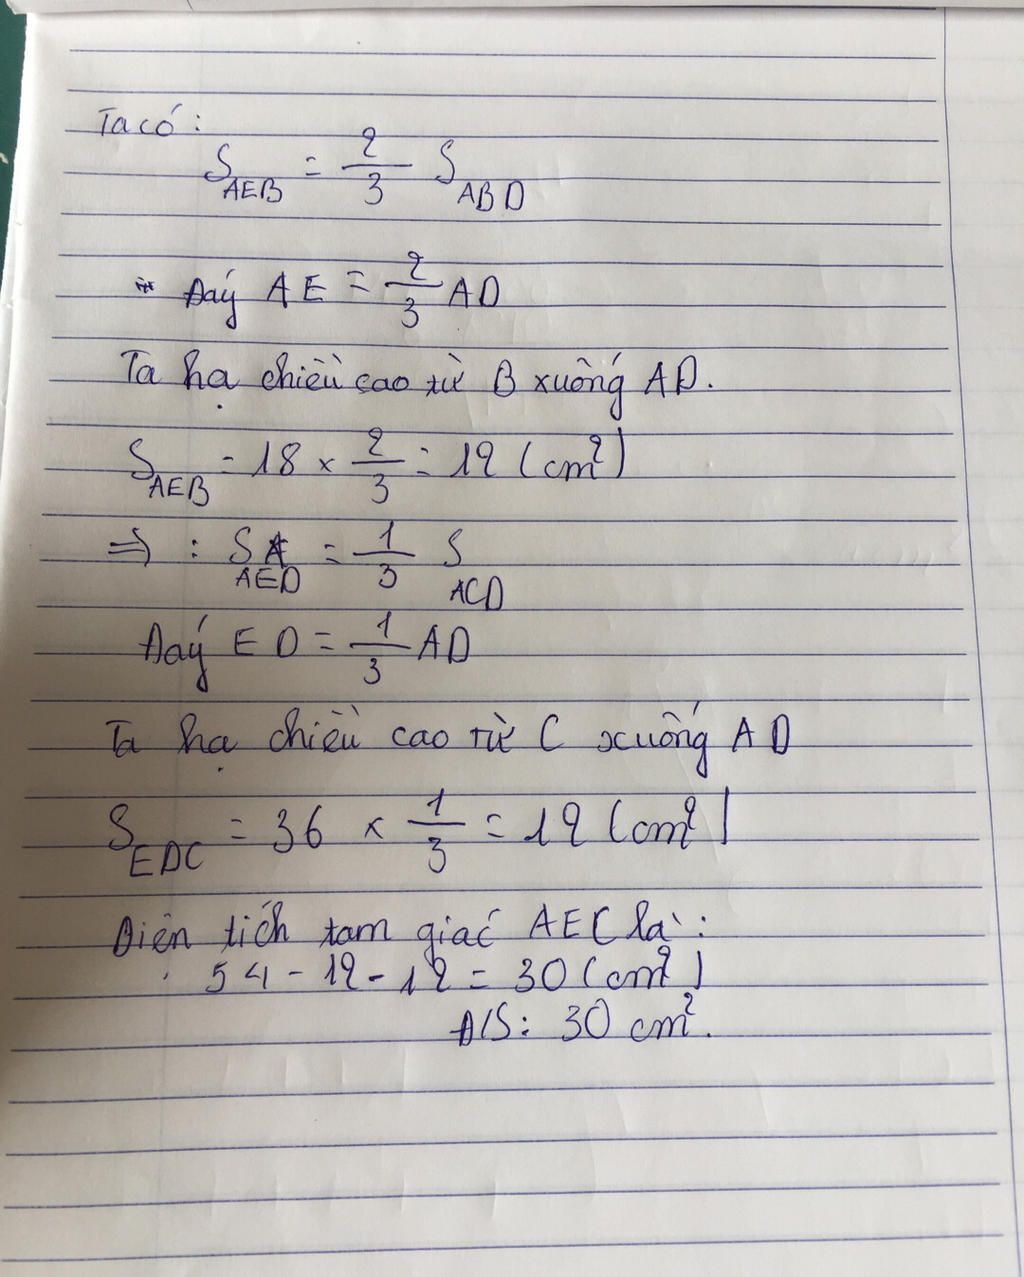 Ta có:
S AEB = 2/3 S ABD
* Đáy AE = 2/3 AD
Ta hạ chiều cao từ B xuống AD.
S AEB = 18 × 2/3 = 12 (cm²)
⇒ : S AED = 1/3 S ACD
Đáy ED = 1/3 AD
Ta hạ chiều cao từ C xuống AD
S EDC = 36 × 1/3 = 12 (cm²)
Diện tích tam giác AEC là:
54 - 12 - 12 = 30 (cm²)
Đ/S: 30 cm².